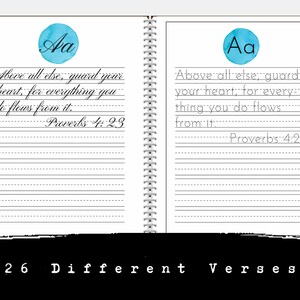 Aa
Above all else, guard your
heart, for everything you
do flows from it.
Proverbs 4:23
Aa
Above all else, guard
your heart, for every-
thing you do flows
from it.
Proverbs 4:2
26 Different Verses